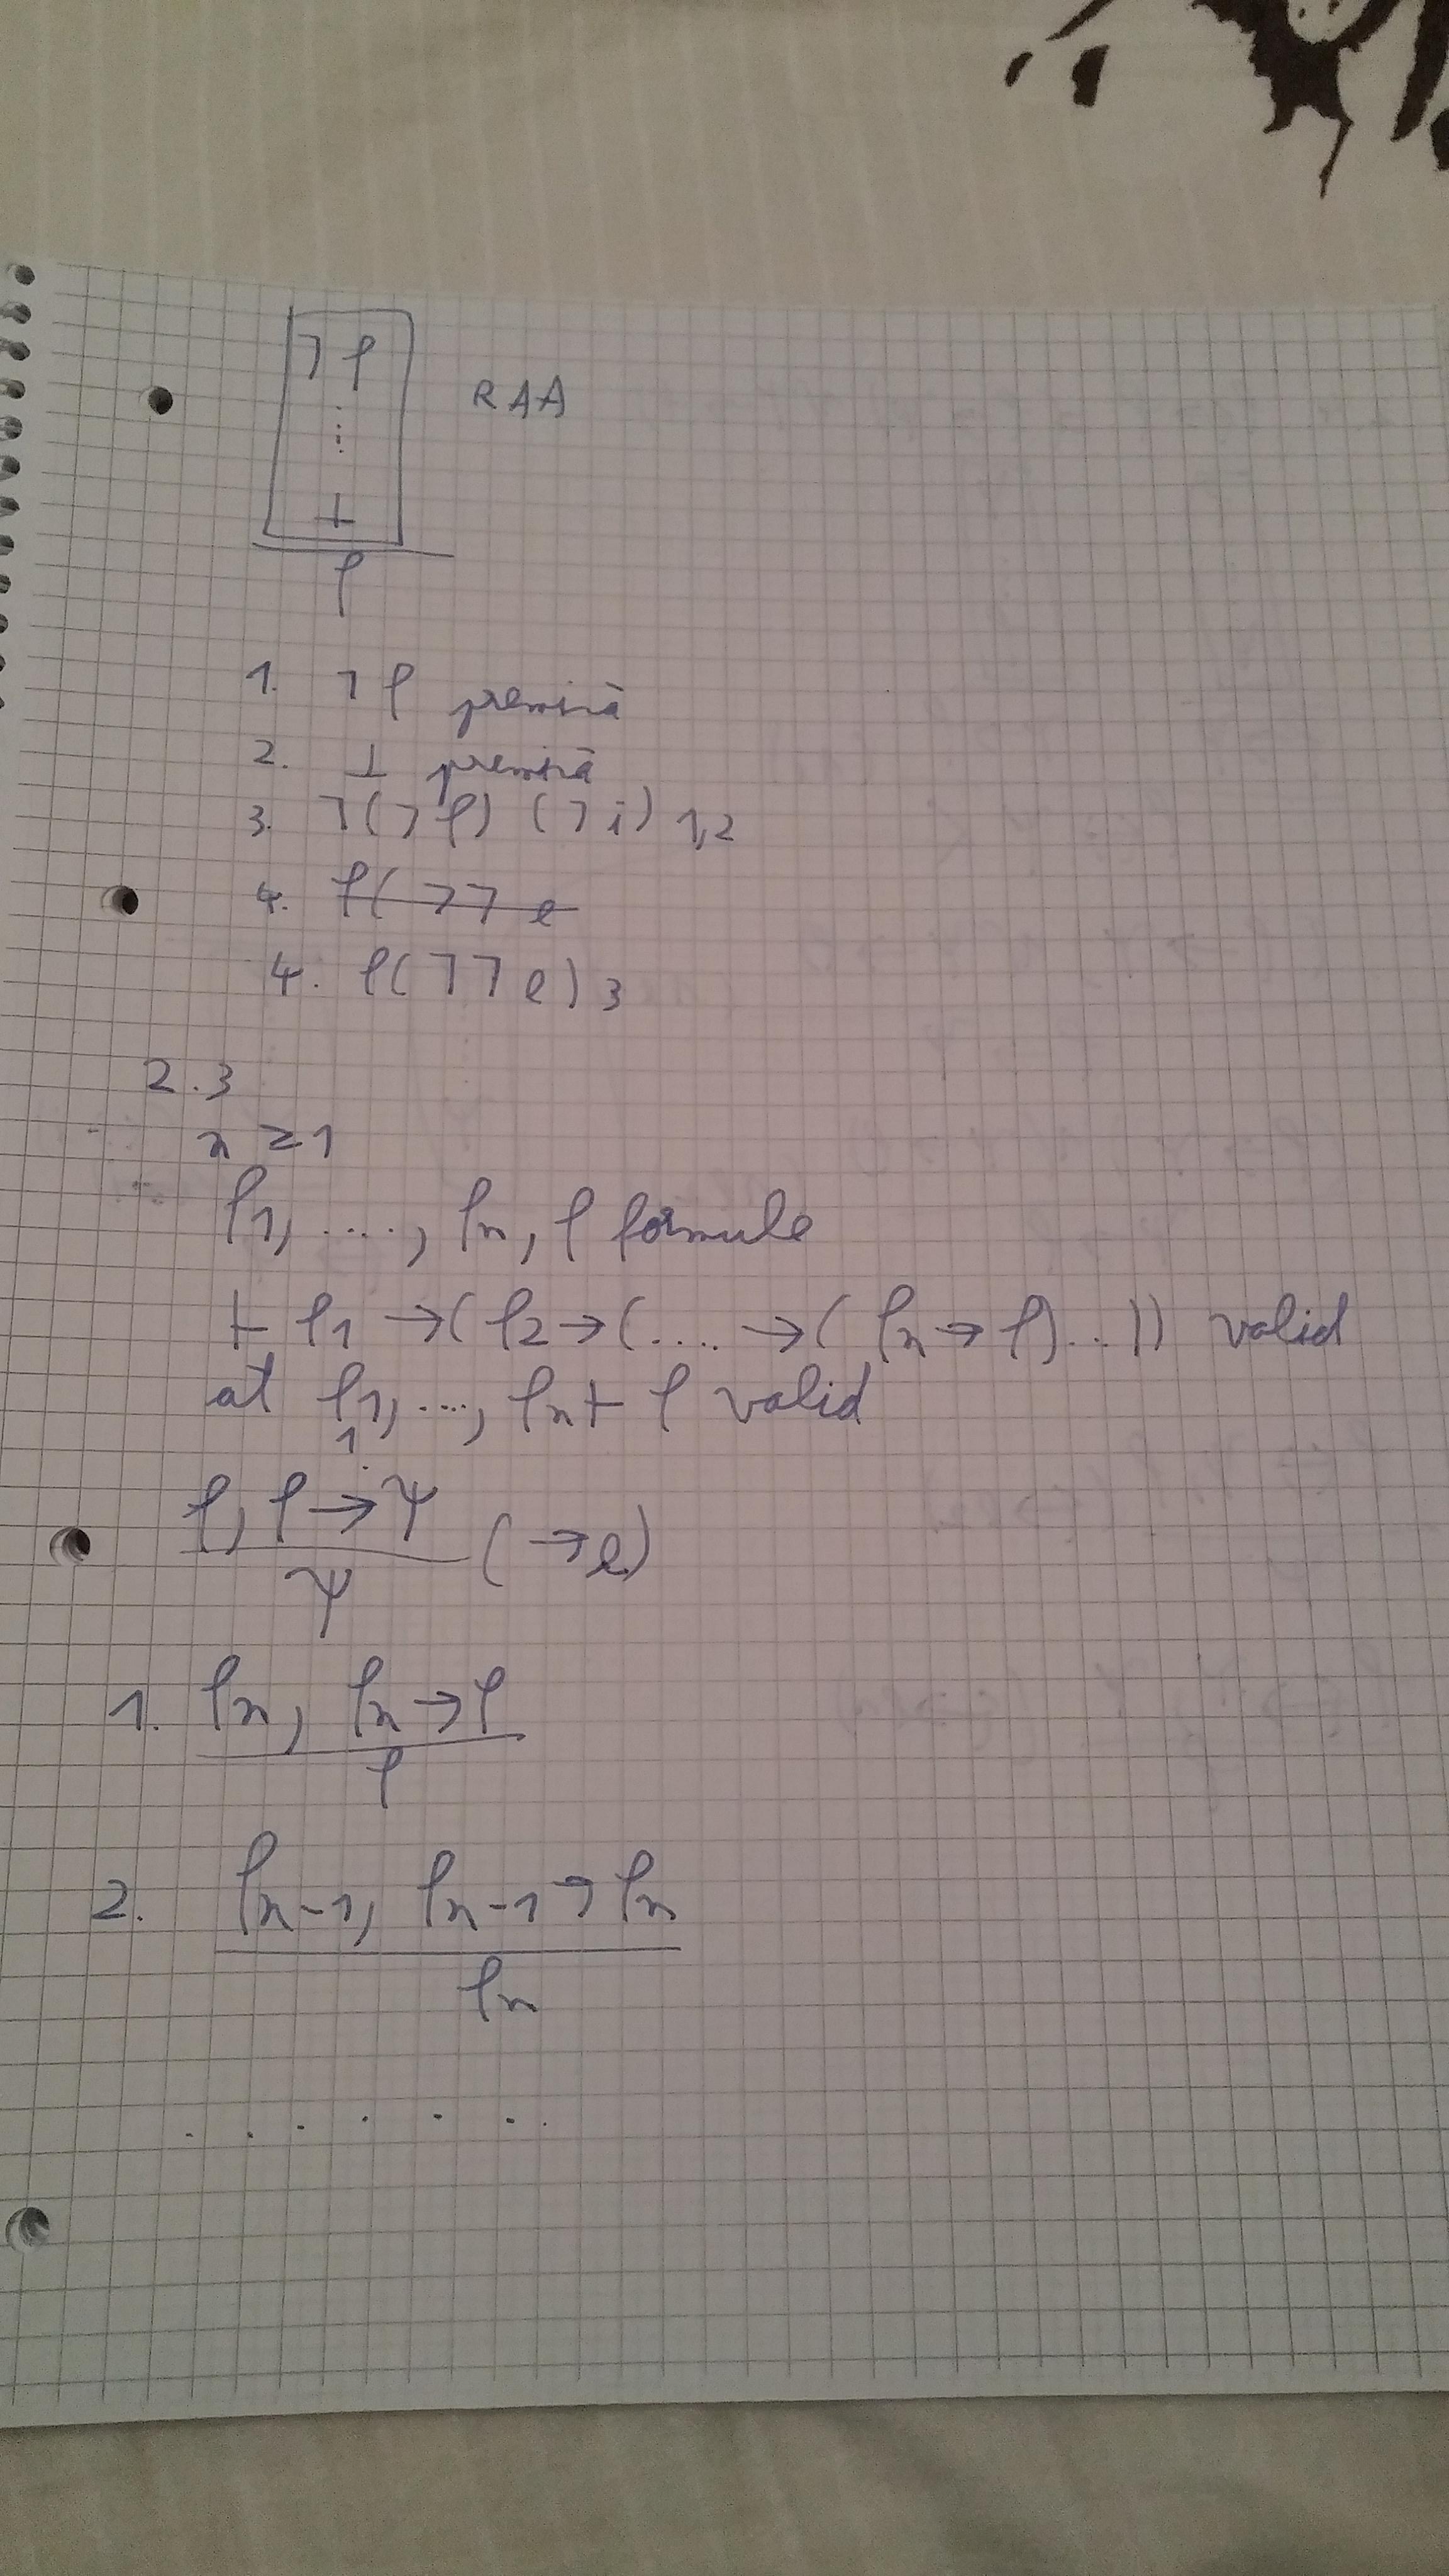 ¬φ
⋮
⊥
RAA
φ
1. ¬φ premisă
2. ⊥ premisă
3. ¬(¬φ) (¬i) 1,2
4. φ( ¬¬ e
4. φ(¬¬e) 3
2.3
n ≥ 1
φ1, ...., φn, φ formule
⊢ φ1 → (φ2 → (.... → (φn → φ)...)) valid
at φ1, ..., φn ⊢ φ valid
φ, φ → ψ
ψ
(→e)
1. φn, φn → φ
φ
2. φn-1, φn-1 → φn
φn
. . . . . . .